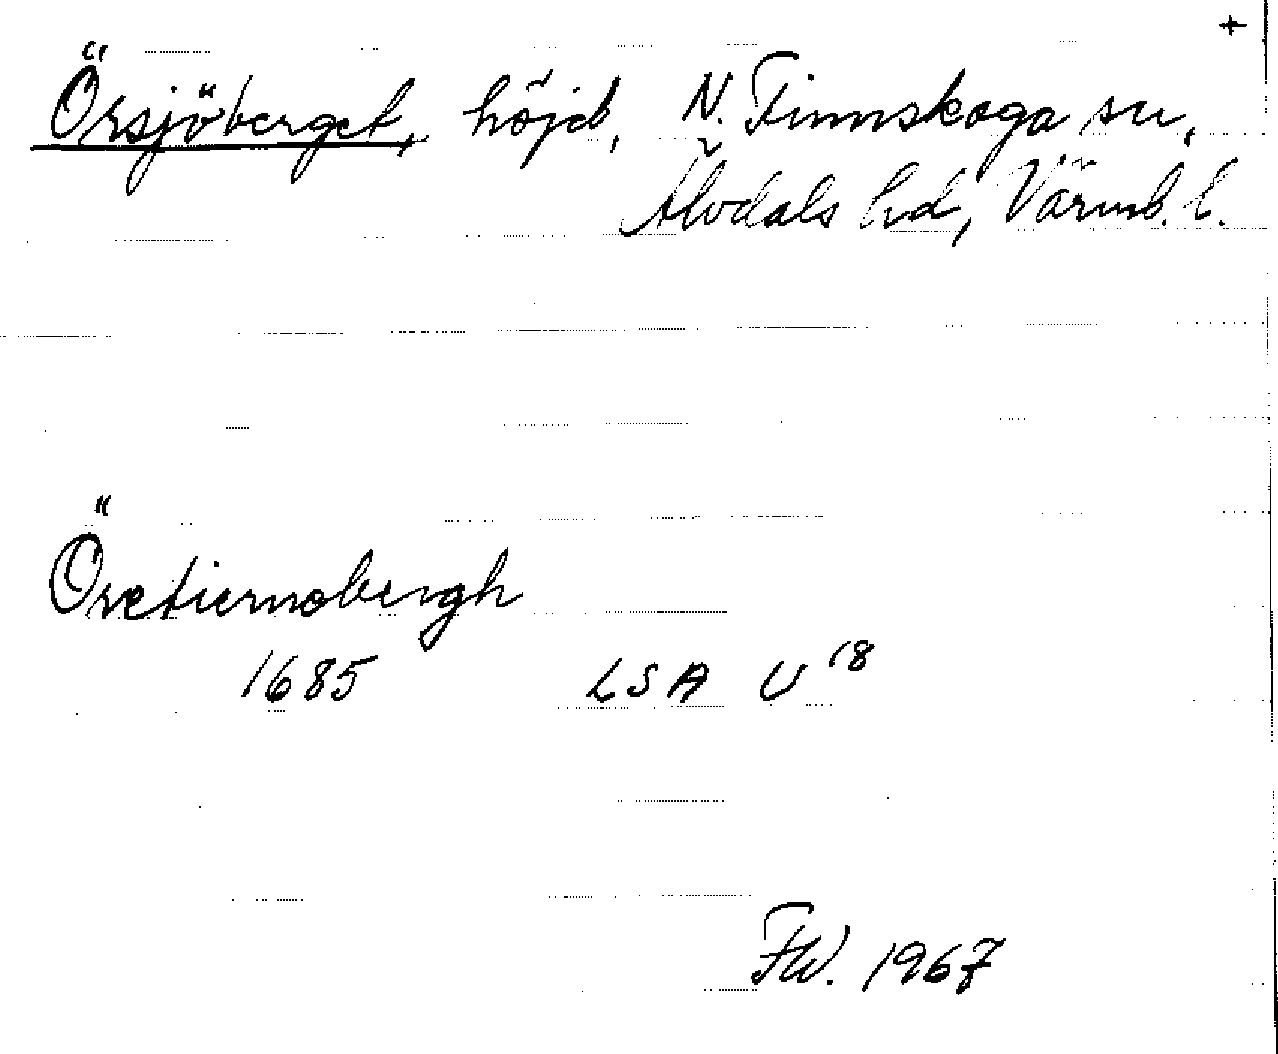 +
Örsjöberget, höjd, N. Finnskoga sn,
Älvdals hd, Värml. l.
Öretiernsbergh
1685 LSA U 18
FW. 1967